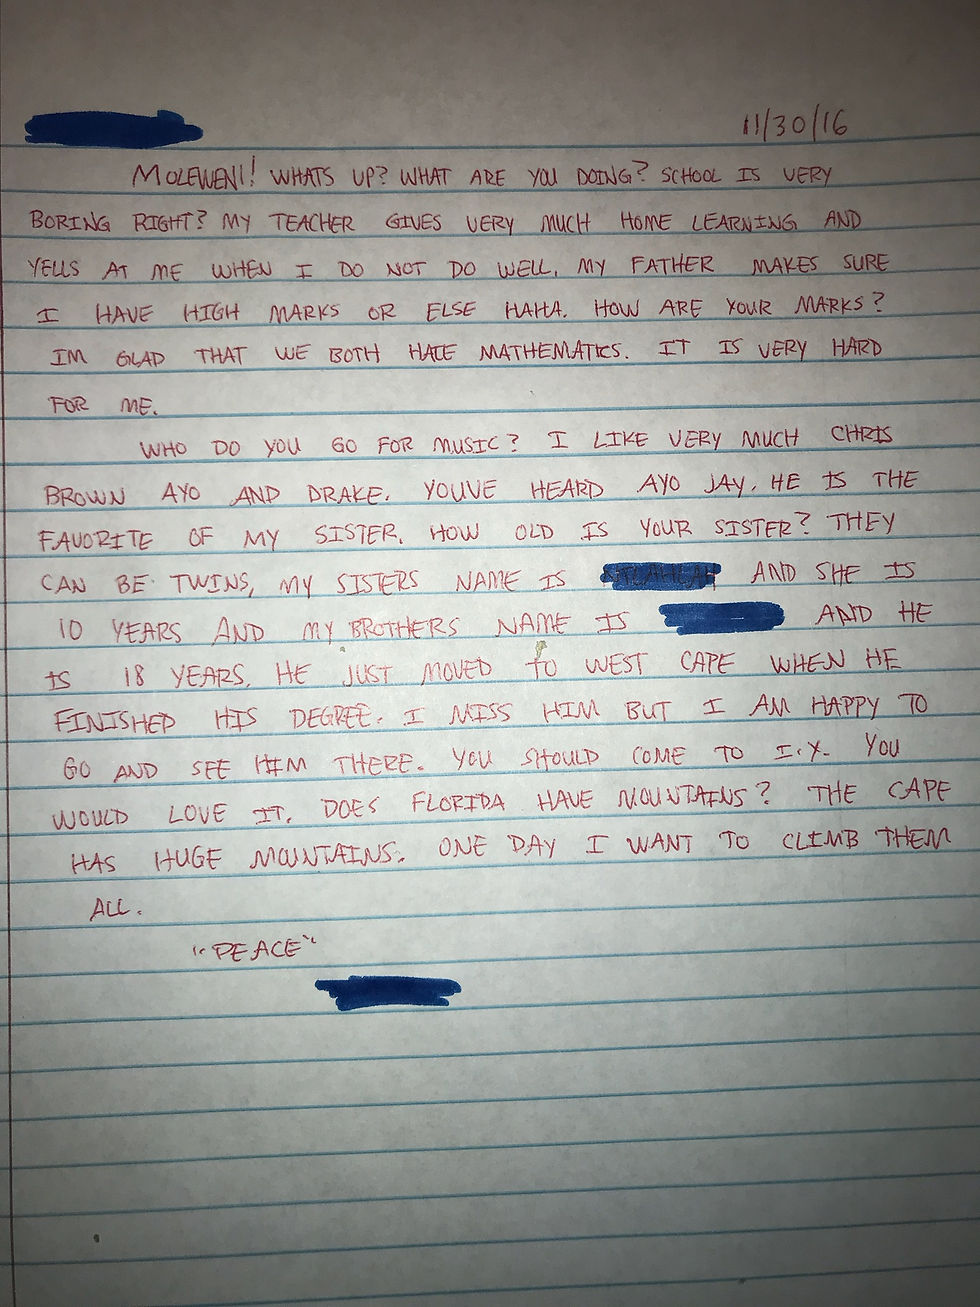 11/30/16
MOLEWENI! WHATS UP? WHAT ARE YOU DOING? SCHOOL IS VERY
BORING RIGHT? MY TEACHER GIVES VERY MUCH HOME LEARNING AND
YELLS AT ME WHEN I DO NOT DO WELL. MY FATHER MAKES SURE
I HAVE HIGH MARKS OR ELSE HAHA. HOW ARE YOUR MARKS?
IM GLAD THAT WE BOTH HATE MATHEMATICS. IT IS VERY HARD
FOR ME.
WHO DO YOU GO FOR MUSIC? I LIKE VERY MUCH CHRIS
BROWN AYO AND DRAKE. YOUVE HEARD AYO JAY. HE IS THE
FAVORITE OF MY SISTER. HOW OLD IS YOUR SISTER? THEY
CAN BE TWINS, MY SISTERS NAME IS AND SHE IS
10 YEARS AND MY BROTHERS NAME IS AND HE
IS 18 YEARS. HE JUST MOVED TO WEST CAPE WHEN HE
FINISHED HIS DEGREE. I MISS HIM BUT I AM HAPPY TO
GO AND SEE HIM THERE. YOU SHOULD COME TO I.X. YOU
WOULD LOVE IT. DOES FLORIDA HAVE MOUNTAINS? THE CAPE
HAS HUGE MOUNTAINS. ONE DAY I WANT TO CLIMB THEM
ALL.
"PEACE"